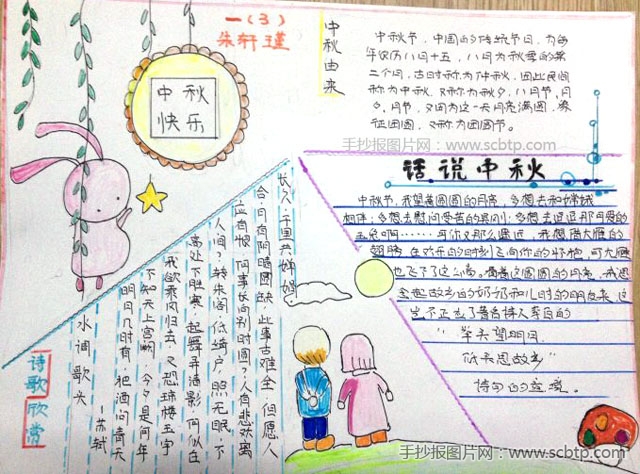 一（3）
朱轩瑾
中秋
快乐
中秋由来
中秋节，中国的传统节日，为每
年农历八月十五，八月为秋季的第
二个月，古时称为仲秋，因此民间
称为中秋，又称为秋夕，八月节，月
夕，月节，又因为这一天月亮满圆，象
征团圆，又称为团圆节。
手抄报图片网：www.scbtp.com
话说中秋
中秋节，我望着圆圆的月亮，多想去和嫦娥
相伴；多想去慰问受苦的吴刚；多想去逗逗那可爱的
玉兔啊……可你又那么遥远，我想借大雁的
翅膀，在欢乐的时刻飞向你的怀抱，可大雁
也飞不了这么高。看着这圆圆的月亮，我想
念起故乡的奶奶和儿时的朋友来，这
岂不正应了著名诗人李白的
“举头望明月，
低头思故乡”
诗句的意境。
诗歌欣赏
水调歌头
——苏轼
明月几时有，把酒问青天
不知天上宫阙，今夕是何年
我欲乘风归去，又恐琼楼玉宇
高处不胜寒，起舞弄清影，何似在
人间？转朱阁，低绮户，照无眠，不
应有恨，何事长向别时圆？人有悲欢离
合，月有阴晴圆缺，此事古难全，但愿人
长久，千里共婵娟
手抄报图片网：www.scbtp.com